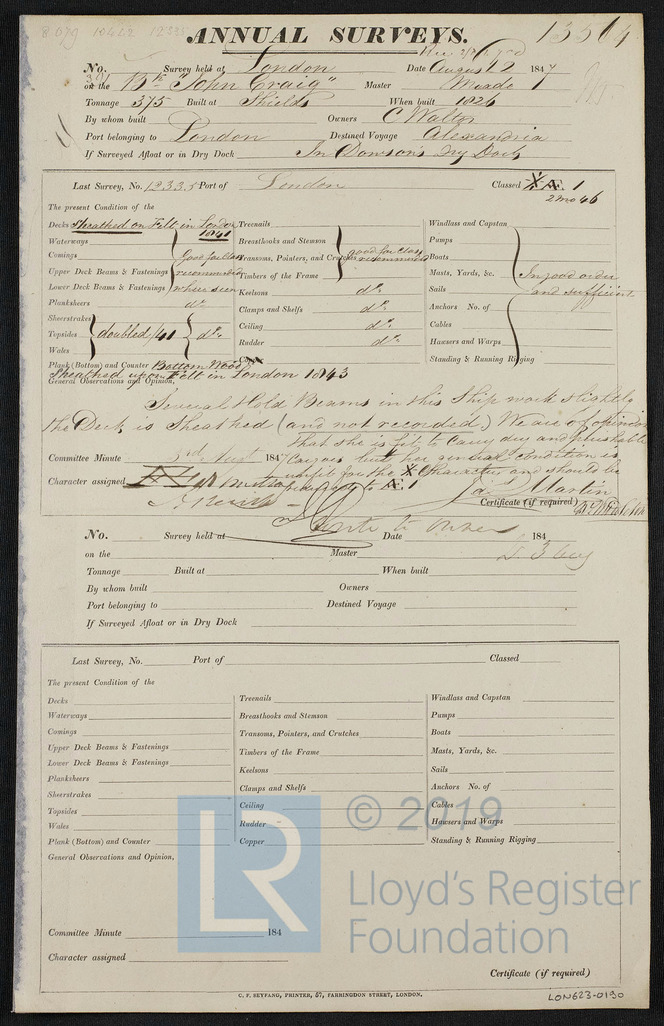 8079 10422 12335
ANNUAL SURVEYS.
13564
No. Survey held at London Date August 2 1847
on the Bk "John Craig" Master Meade
Tonnage 375 Built at Shields When built 1826
By whom built Owners C Walton
Port belonging to London Destined Voyage Alexandria
If Surveyed Afloat or in Dry Dock In Dowson's Dry Dock
Last Survey, No. 12335 Port of London Classed Æ 1
2 mo 46
The present Condition of the
Decks Sheathed on Felt in London 1841
Waterways
Comings
Upper Deck Beams & Fastenings
Lower Deck Beams & Fastenings
good for class recommended where seen
Planksheers do.
Sheerstrakes
Topsides doubled /41 do.
Wales
Plank (Bottom) and Counter Bottom Wood
Sheathed upon Felt in London 1843
Treenails
Breasthooks and Stemson
Transoms, Pointers, and Crutches
Timbers of the Frame
good for class recommended
Keelsons do.
Clamps and Shelfs do.
Ceiling do.
Rudder do.
Copper
Windlass and Capstan
Pumps
Boats
Masts, Yards, &c.
Sails
Anchors No. of
Cables
Hawsers and Warps
Standing & Running Rigging
In good order and sufficient
General Observations and Opinion,
Several Hold Beams in this Ship work slightly
the Deck is Sheathed (and not recorded) We are of opinion
that she is fit to carry dry and perishable
Committee Minute 3rd August 1847
Cargoes but her general condition is
unfit for the Character and should be
Character assigned
Æ 1
Jas Martin
Certificate (if required)
Wrote to Owner
No. Survey held at Date 184
on the Master
Tonnage Built at When built
By whom built Owners
Port belonging to Destined Voyage
If Surveyed Afloat or in Dry Dock
Last Survey, No. Port of Classed
The present Condition of the
Decks
Waterways
Comings
Upper Deck Beams & Fastenings
Lower Deck Beams & Fastenings
Planksheers
Sheerstrakes
Topsides
Wales
Plank (Bottom) and Counter
Treenails
Breasthooks and Stemson
Transoms, Pointers, and Crutches
Timbers of the Frame
Keelsons
Clamps and Shelfs
Ceiling
Rudder
Copper
Windlass and Capstan
Pumps
Boats
Masts, Yards, &c.
Sails
Anchors No. of
Cables
Hawsers and Warps
Standing & Running Rigging
General Observations and Opinion,
LR © 2019
Lloyd's Register
Foundation
Committee Minute 184
Character assigned
Certificate (if required)
C. F. SEYFANG, PRINTER, 57, FARRINGDON STREET, LONDON.
LON623-0190